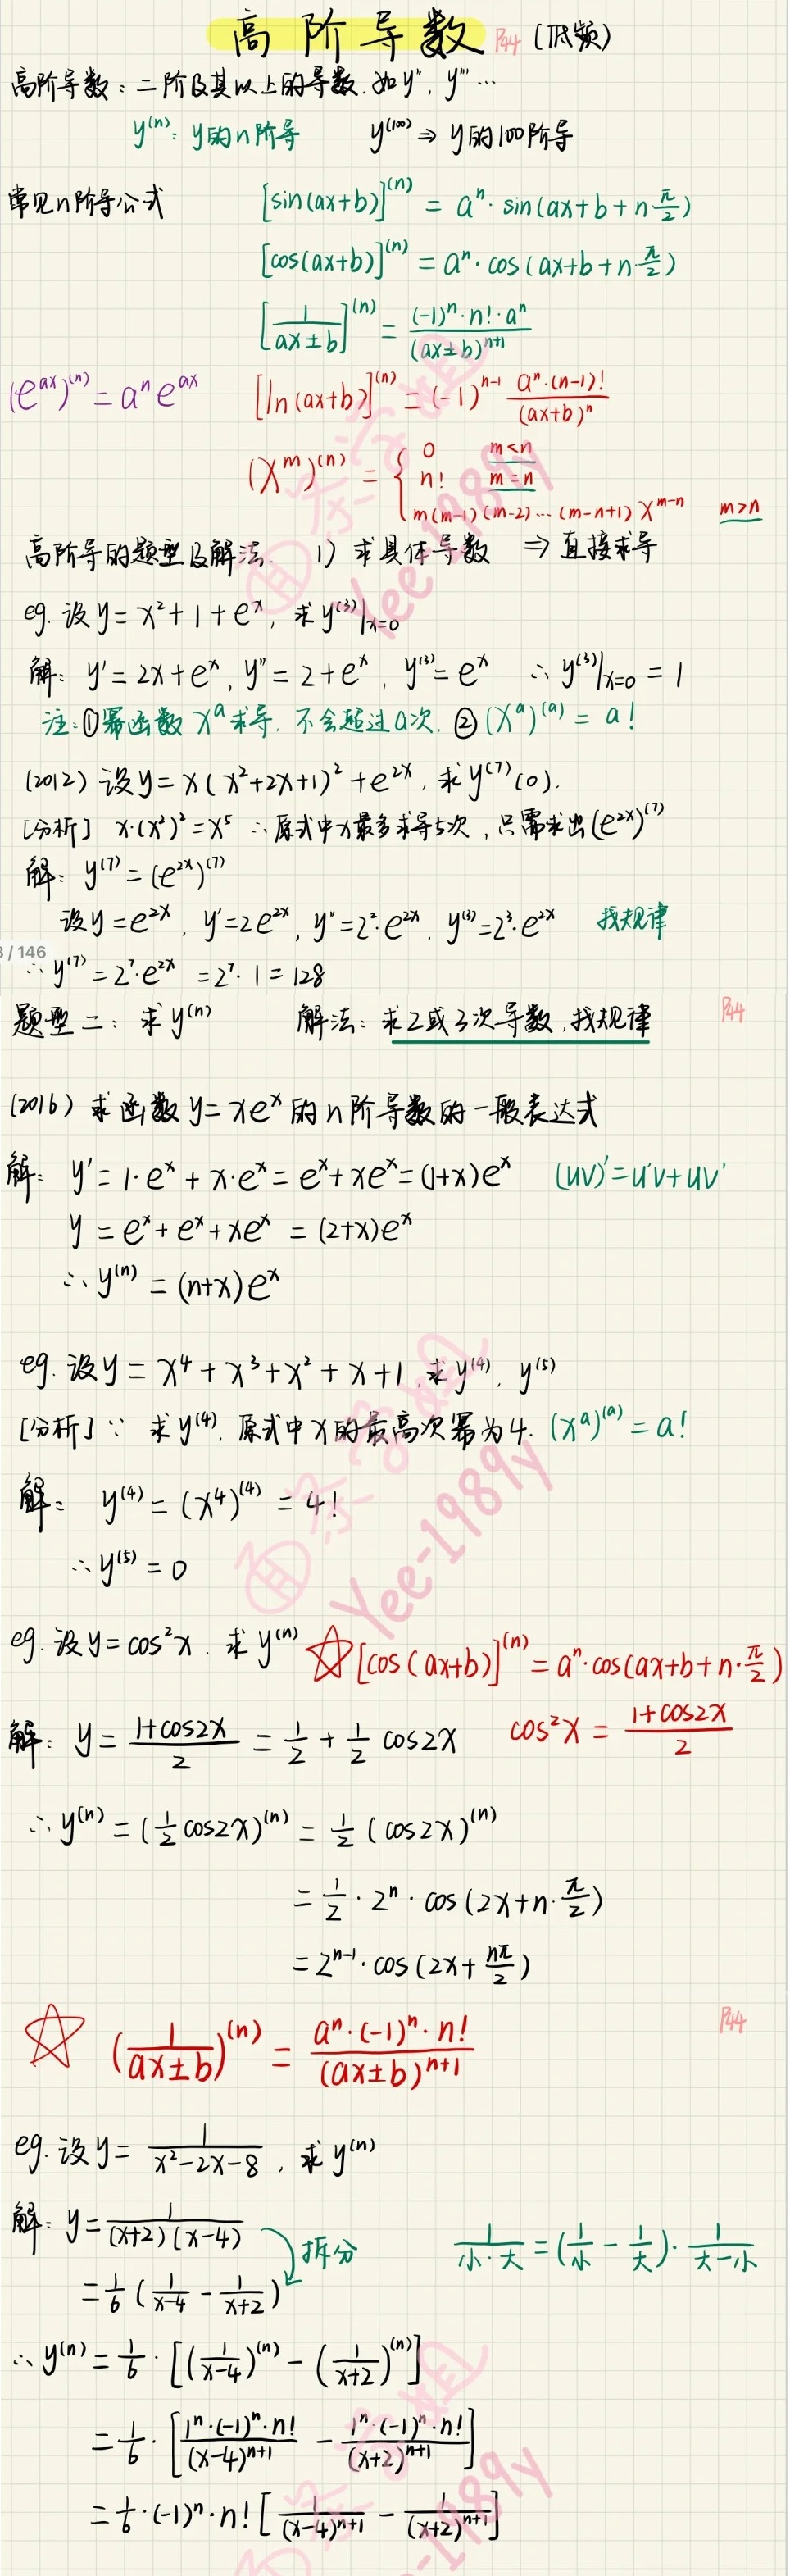 高阶导数 P44 (低频)
高阶导数：二阶及其以上的导数.如y'', y''' ...
y⁽ⁿ⁾: y的n阶导 y⁽¹⁰⁰⁾ ⇒ y的100阶导
常见n阶导公式 [sin(ax+b)]⁽ⁿ⁾ = aⁿ·sin(ax+b+n·π/2)
[cos(ax+b)]⁽ⁿ⁾ = aⁿ·cos(ax+b+n·π/2)
[1/(ax±b)]⁽ⁿ⁾ = (-1)ⁿ·n!·aⁿ/(ax±b)ⁿ⁺¹
(eᵃˣ)⁽ⁿ⁾ = aⁿeᵃˣ [ln(ax+b)]⁽ⁿ⁾ = (-1)ⁿ⁻¹ aⁿ·(n-1)!/(ax+b)ⁿ
(xᵐ)⁽ⁿ⁾ = { 0 m<n
n! m=n
m(m-1)(m-2)...(m-n+1) xᵐ⁻ⁿ m>n
高阶导的题型及解法. 1) 求具体导数 ⇒ 直接求导
eg. 设y=x²+1+eˣ, 求y⁽³⁾|x=0
解: y'=2x+eˣ, y''=2+eˣ, y⁽³⁾=eˣ ∴ y⁽³⁾|x=0 = 1
注:①幂函数 xᵃ求导. 不会超过a次. ② (xᵃ)⁽ᵃ⁾ = a!
(2012) 设y=x(x²+2x+1)²+e²ˣ, 求y⁽⁷⁾(0).
[分析] x·(x²)²=x⁵ ∴原式中x最多求导5次，只需求出(e²ˣ)⁽⁷⁾
解: y⁽⁷⁾=(e²ˣ)⁽⁷⁾
设y=e²ˣ, y'=2e²ˣ, y''=2²·e²ˣ. y⁽³⁾=2³·e²ˣ 找规律
3/146
∴ y⁽⁷⁾=2⁷·e²ˣ =2⁷·1=128
题型二: 求y⁽ⁿ⁾ 解法: 求2或3次导数,找规律 P44
(2016) 求函数y=xeˣ的n阶导数的一般表达式
解: y'=1·eˣ+x·eˣ=eˣ+xeˣ=(1+x)eˣ (uv)'=u'v+uv'
y =eˣ+eˣ+xeˣ =(2+x)eˣ
∴ y⁽ⁿ⁾ =(n+x)eˣ
eg. 设y=x⁴+x³+x²+x+1, 求y⁽⁴⁾, y⁽⁵⁾
[分析] ∵ 求y⁽⁴⁾, 原式中x的最高次幂为4. (xᵃ)⁽ᵃ⁾=a!
解: y⁽⁴⁾=(x⁴)⁽⁴⁾=4!
∴ y⁽⁵⁾=0
eg. 设y=cos²x. 求y⁽ⁿ⁾ ☆ [cos(ax+b)]⁽ⁿ⁾=aⁿ·cos(ax+b+n·π/2)
解: y=(1+cos2x)/2 = 1/2 + 1/2 cos2x cos²x = (1+cos2x)/2
∴ y⁽ⁿ⁾ = (1/2 cos2x)⁽ⁿ⁾ = 1/2 (cos2x)⁽ⁿ⁾
= 1/2 · 2ⁿ · cos(2x+n·π/2)
= 2ⁿ⁻¹·cos(2x+nπ/2)
P44
☆ (1/(ax±b))⁽ⁿ⁾ = aⁿ·(-1)ⁿ·n!/(ax±b)ⁿ⁺¹
eg. 设y= 1/(x²-2x-8), 求y⁽ⁿ⁾
解: y=1/((x+2)(x-4)) 拆分 1/(小·大)=(1/小-1/大)·1/(大-小)
=1/6 (1/(x-4) - 1/(x+2))
∴ y⁽ⁿ⁾=1/6·[(1/(x-4))⁽ⁿ⁾-(1/(x+2))⁽ⁿ⁾]
=1/6·[1ⁿ·(-1)ⁿ·n!/(x-4)ⁿ⁺¹ - 1ⁿ·(-1)ⁿ·n!/(x+2)ⁿ⁺¹]
=1/6·(-1)ⁿ·n![1/(x-4)ⁿ⁺¹ - 1/(x+2)ⁿ⁺¹]
Yee-1989y
Yee-1989y
-1989y